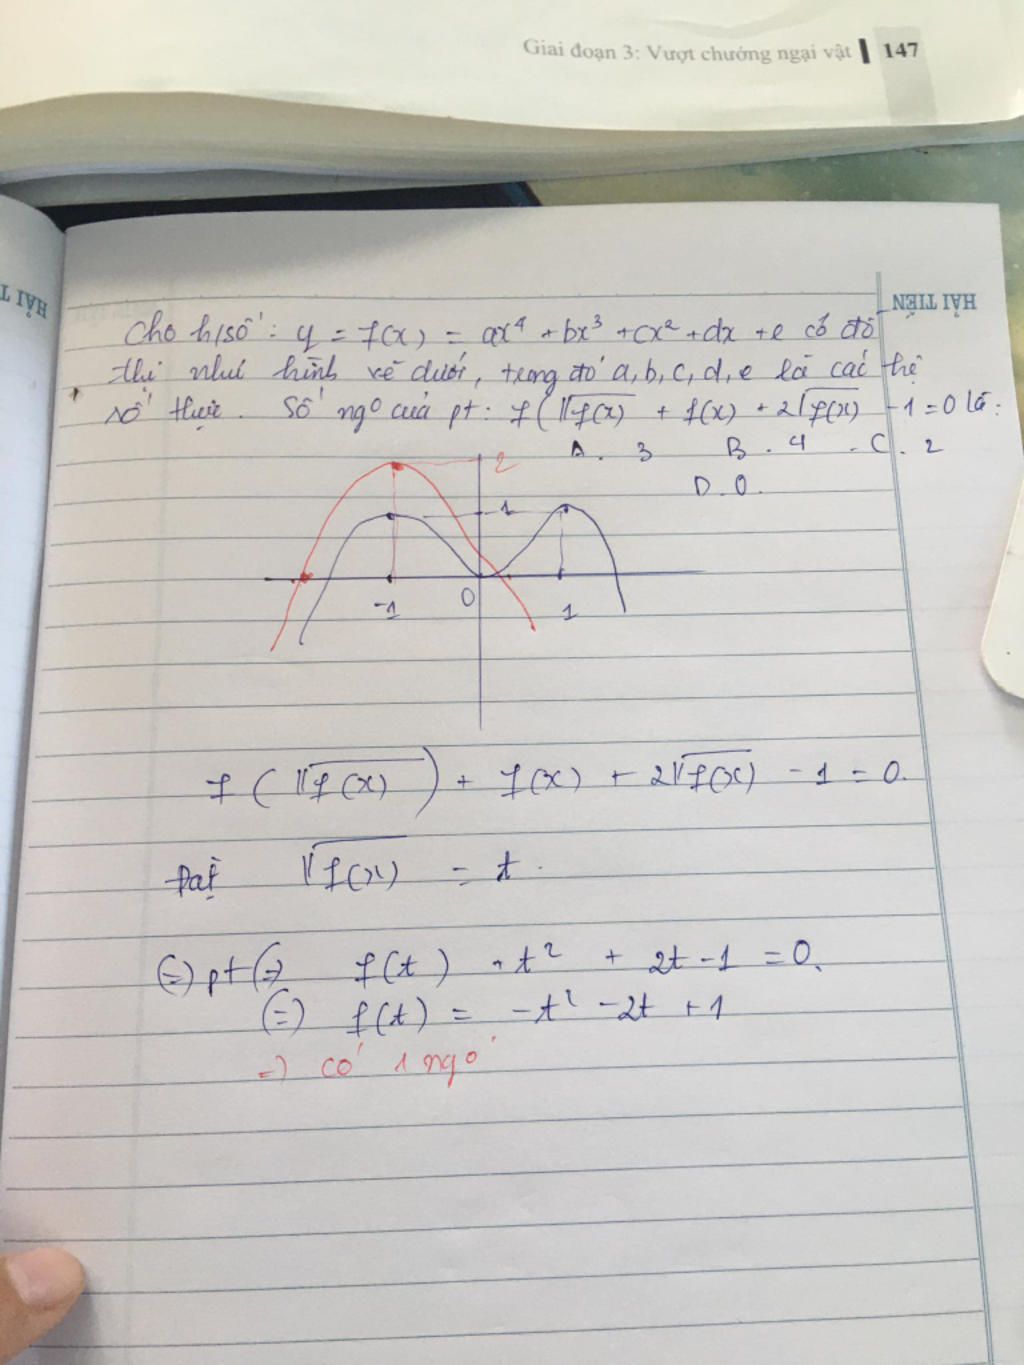 Giai đoạn 3: Vượt chướng ngại vật 147
HẢI T
HẢI TIẾN
Cho h/số: y = f(x) = ax⁴ + bx³ + cx² + dx + e có đồ
thị như hình vẽ dưới, trong đó a, b, c, d, e là các hệ
số thực. Số ngo của pt: f(√f(x) + f(x) + 2√f(x) - 1 = 0 là:
A. 3 B. 4 C. 2
D. 0.
2
1
-1 0 1
f(√f(x)) + f(x) + 2√f(x) - 1 = 0.
Đặt √f(x) = t.
(=) pt (=) f(t) + t² + 2t - 1 = 0.
(=) f(t) = -t² - 2t + 1
=) có 1 ngo